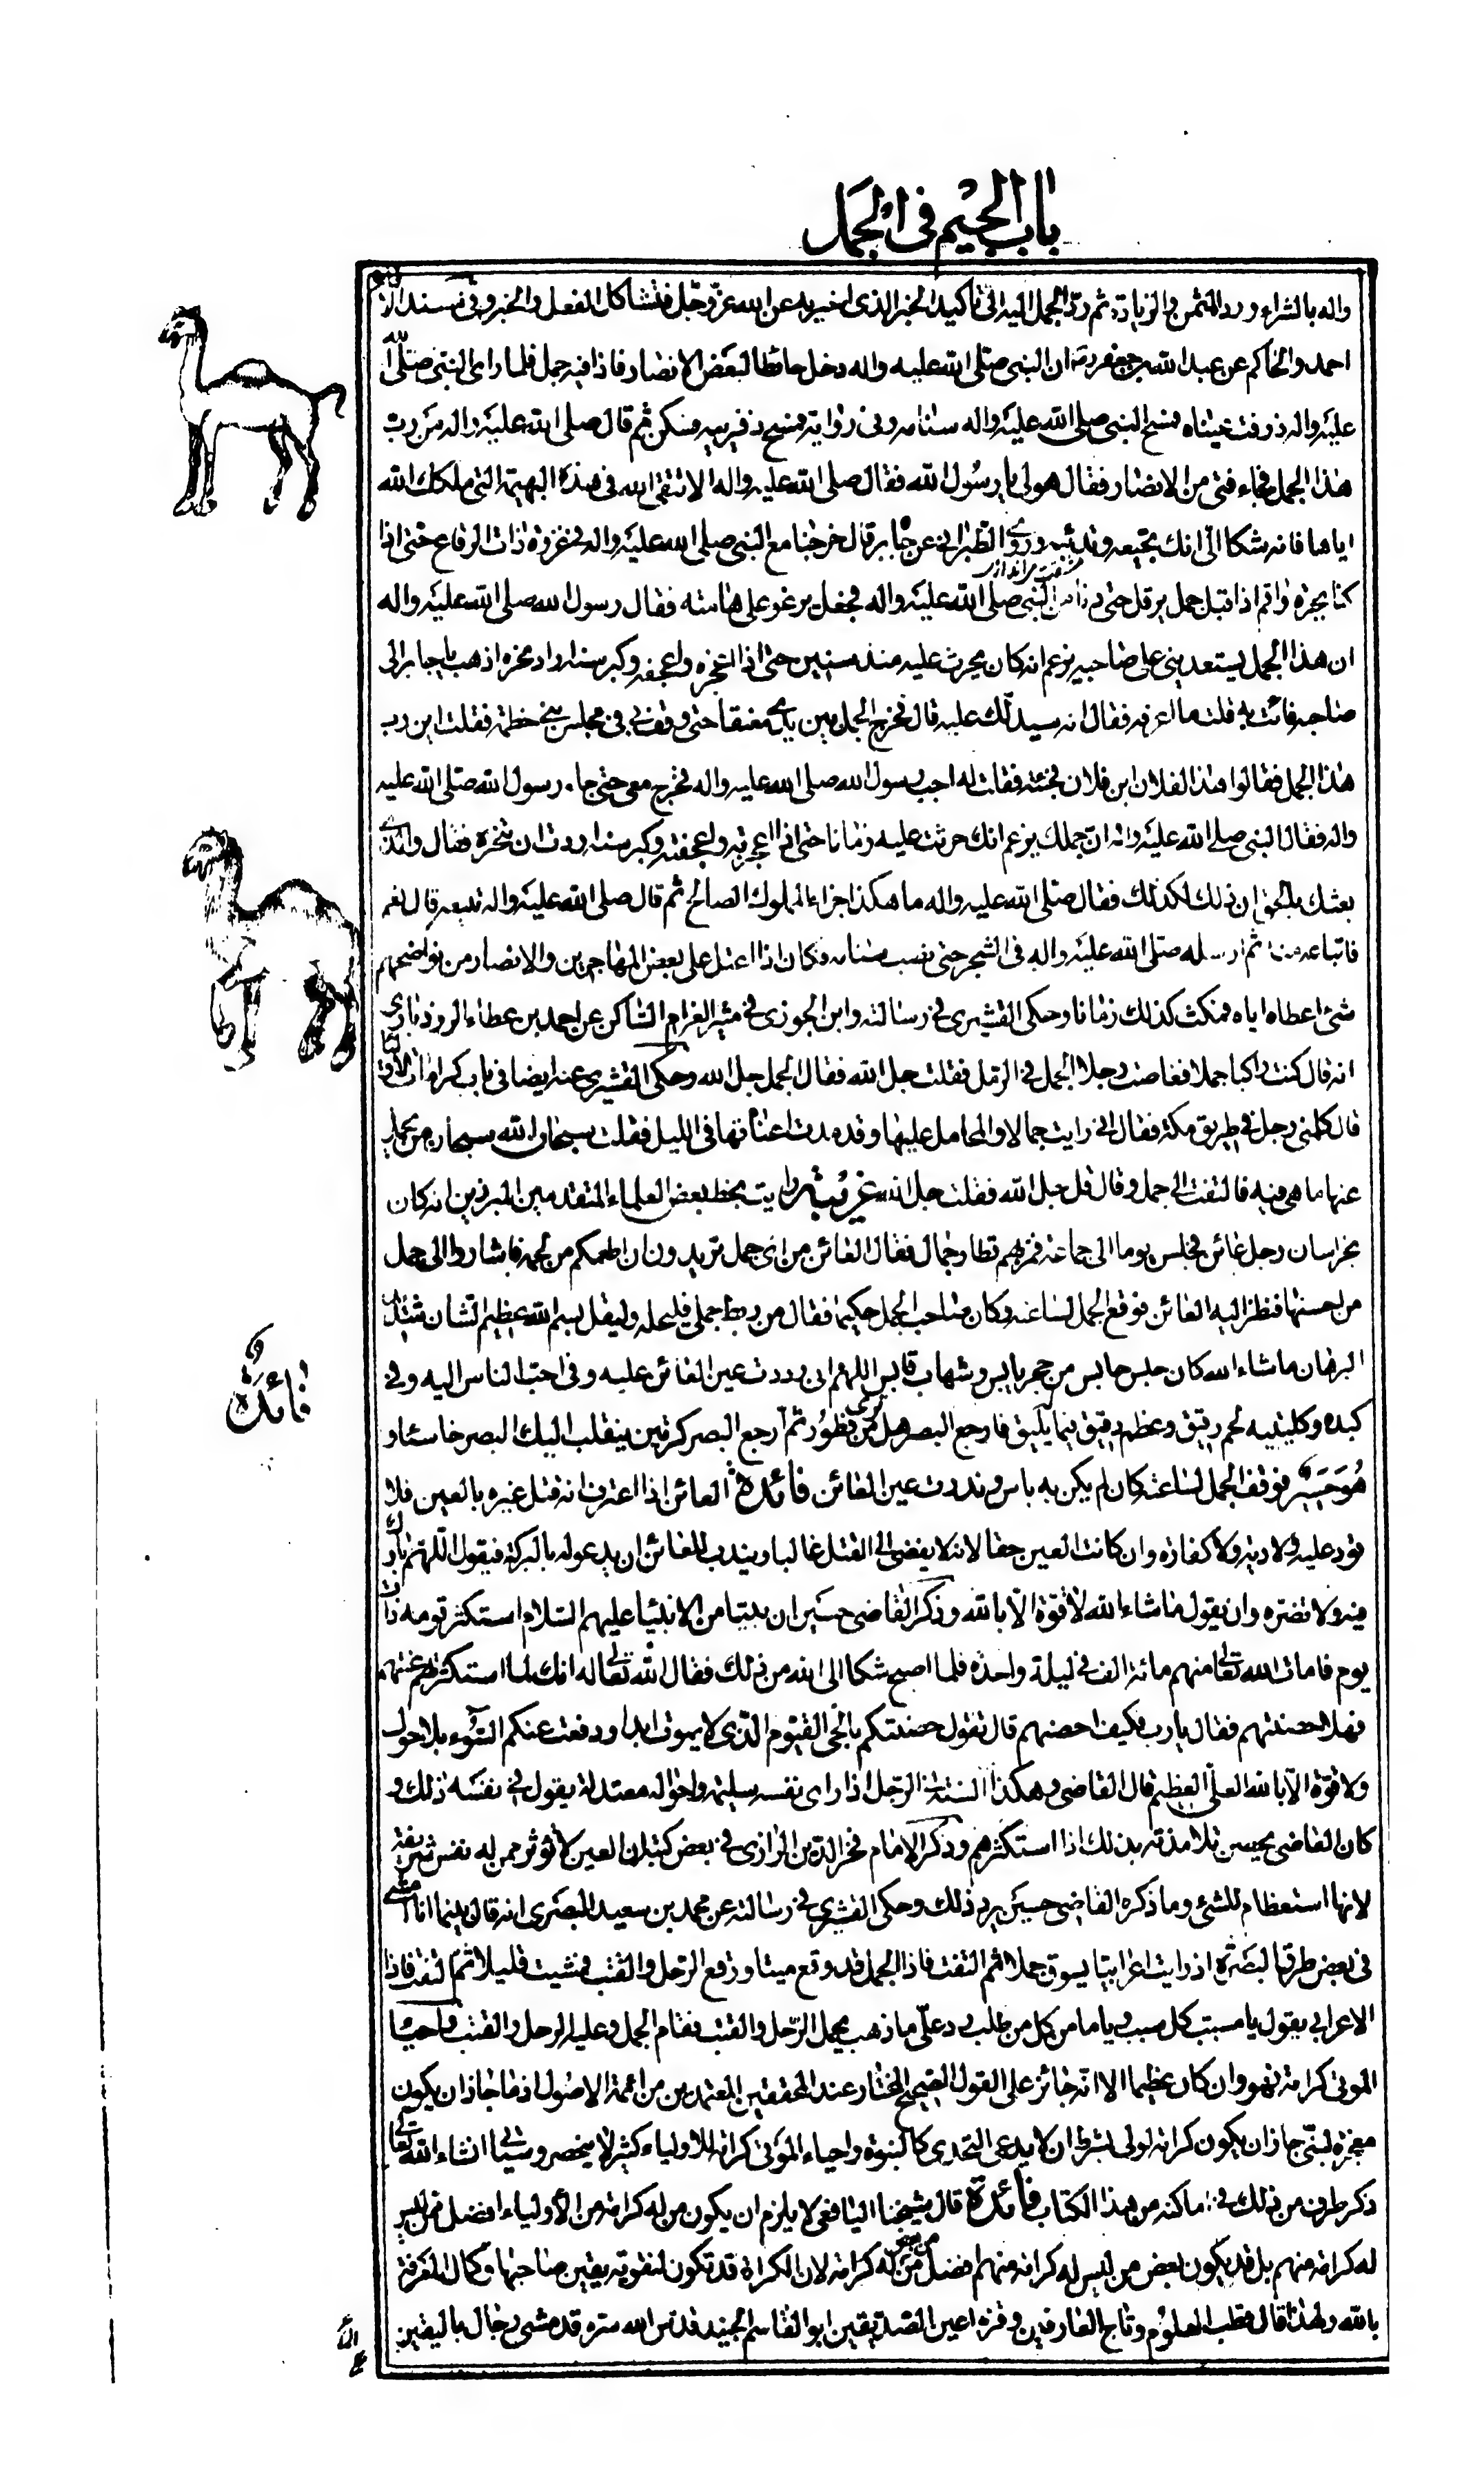 باب الجيم فی الجمل
واله بالشراء ورد الثمن والزيادة ثم رد الجمل اليه الى تاكيد الخبر الذى اخبر به عن الله عز وجل فتشاكل الفعل والخبر وفى مسند الامام
احمد والحاكم عن عبد الله بن جعفر رضه ان النبى صلى الله عليه واله دخل حائطا لبعض الانصار فاذا فيه جمل فلما راى النبى صلى الله
عليه واله ذرفت عيناه فمسح النبى صلى الله عليه واله سنامه وفى رواية فمسح ذفريه فسكن ثم قال صلى الله عليه واله من رب
هذا الجمل فجاء فتى من الانصار فقال هو لى يا رسول الله فقال صلى الله عليه واله الا تتقى الله فى هذه البهيمة التى ملكك الله
اياها فانه شكا الىّ انك تجيعه وتدئبه وروى الطبرانى عن جابر قال خرجنا مع النبى صلى الله عليه واله فى غزوة ذات الرقاع حتى اذا
كنا بحرة واقم اذ اقبل جمل يرقل حتى دنا من النبى صلى الله عليه واله فجعل يرغو على هامته فقال رسول الله صلى الله عليه واله
ان هذا الجمل يستعدينى على صاحبه يزعم انه كان يحرث عليه منذ سنين حتى اذا اعجزه واعجفه وكبر سنه اراد نحره اذهب يا جابر الى
صاحبه فائت به قلت ما اعرفه فقال انه سيدلك عليه قال فخرج الجمل بين يدى معنقا حتى وقف بى فى مجلس بنى خطمة فقلت اين رب
هذا الجمل فقالوا هذا لفلان ابن فلان فجئته فقلت له اجب رسول الله صلى الله عليه واله فخرج معى حتى جاء رسول الله صلى الله عليه
واله فقال النبى صلى الله عليه واله ان جملك يزعم انك حرثت عليه زمانا حتى اذا اعجزته واعجفته وكبر سنه اردت ان تنحره فقال والذى
بعثك بالحق ان ذلك لكذلك فقال صلى الله عليه واله ما هكذا جزاء المملوك الصالح ثم قال صلى الله عليه واله تبيعه قال نعم
فابتاعه منه ثم ارسله صلى الله عليه واله فى الشجر حتى نصب سنامه فكان اذا اعتل على بعض المهاجرين والانصار من نواضحهم
شئ اعطاه اياه فمكث كذلك زمانا وحكى القشيرى فى رسالته وابن الجوزى فى مثير الغرام الساكن عن احمد بن عطاء الروذبارى
انه قال كنت راكبا جملا فغاصت رجلا الجمل فى الرمل فقلت جل الله فقال الجمل جل الله وحكى القشيرى عنه ايضا فى باب كرامات الاولياء
قال كلمنى رجل فى طريق مكة فقال انى رايت جمالا والمحامل عليها وقد مدت اعناقها فى الليل فقلت سبحان الله سبحان من يحمل
عنها ما هى فيه فالتفت الىّ جمل وقال قل جل الله فقلت جل الله غريبة رايت بخط بعض العلماء المتقدمين المبرزين انه كان
بخراسان رجل عائن فجلس يوما الى جماعة فمر بهم قطار جمال فقال العائن من اى جمل تريدون ان اطعمكم من لحمه فاشاروا الى جمل
من احسنها فنظر اليه العائن فوقع الجمل لساعته وكان صاحب الجمل حكيما فقال من ربط جملى فليحله وليقل بسم الله عظيم الشان شديد
البرهان ما شاء الله كان حبس حابس من حجر يابس وشهاب قابس اللهم انى رددت عين العائن عليه وفى احب الناس اليه وفى
كبده وكليتيه لحم رقيق وعظم دقيق فيما يليق فارجع البصر هل ترى من فطور ثم ارجع البصر كرتين ينقلب اليك البصر خاسئا و
هو حسير فوقف الجمل لساعته كان لم يكن به باس وندرت عين العائن فائدة العائن اذا اعترف انه قتل غيره بالعين فلا
قود عليه ولا دية ولا كفارة وان كانت العين حقا لانه لا يفضى الى القتل غالبا ويندب للعائن ان يدعو له بالبركة فيقول اللهم بارك
فيه ولا تضره وان يقول ما شاء الله لا قوة الا بالله وذكر القاضى حسين ان نبيا من الانبياء عليهم السلام استكثر قومه ذات
يوم فامات الله تعالى منهم مائة الف فى ليلة واحدة فلما اصبح شكا الى الله من ذلك فقال الله تعالى له انك لما استكثرتهم عنتهم
فهلا حصنتهم فقال يا رب فكيف احصنهم قال تقول حصنتكم بالحى القيوم الذى لا يموت ابدا ودفعت عنكم السوء بلا حول
ولا قوة الا بالله العلى العظيم قال القاضى وهكذا السنة ان الرجل اذا راى نفسه سليمة واحواله معتدلة يقول فى نفسه ذلك و
كان القاضى يحصن تلامذته بذلك اذا استكثرهم وذكر الامام فخر الدين الرازى فى بعض كتبه ان العين لا تؤثر ممن له نفس شريفة
لانها استعظام للشئ وما ذكره القاضى حسين يرد ذلك وحكى القشيرى فى رسالته عن محمد بن سعيد البصرى انه قال بينما انا امشى
فى بعض طرق البصرة اذ رايت اعرابيا يسوق جملا ثم التفت فاذا الجمل قد وقع ميتا ووقع الرحل والقتب فمشيت قليلا ثم التفت فاذا
الاعرابى يقول يا مسبب كل سبب ويا مامن كل من طلب رد على ما ذهب يحمل الرحل والقتب فقام الجمل وعليه الرحل والقتب واحياء
الموتى كرامة فهو وان كان عظيما الا انه جائز على القول الصحيح المختار عند المحققين المعتمدين من ائمة الاصول اذ ما جاز ان يكون
معجزة لنبى جاز ان يكون كرامة لولى بشرط ان لا يدعى التحدى كالنبوة واحياء الموتى كرامة للاولياء كثير لا ينحصر وسياتى انشاء الله تعالى
ذكر طرف من ذلك فى اماكنه من هذا الكتاب فائدة قال شيخنا اليافعى لا يلزم ان يكون من له كرامة من الاولياء افضل ممن ليس
له كرامة منهم بل قد يكون بعض من ليس له كرامة منهم افضل من بعض من له كرامة لان الكرامة قد تكون لتقوية يقين صاحبها وكمال المعرفة
بالله ولهذا قال قطب العلوم وتاج العارفين وقرة اعين الصديقين ابو القاسم الجنيد قدس الله سره قد مشى رجال باليقين
فائدة